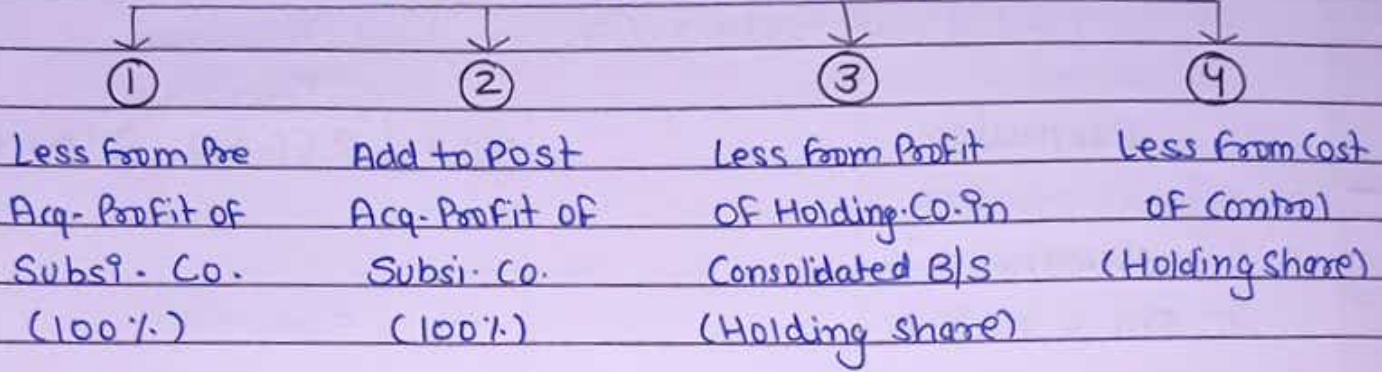 1
Less from Pre
Acq- Profit of
Subsi. Co.
(100%)
2
Add to Post
Acq- Profit of
Subsi. Co.
(100%)
3
Less from Profit
of Holding. Co. in
Consolidated B/S
(Holding share)
4
Less from Cost
of Control
(Holding share)